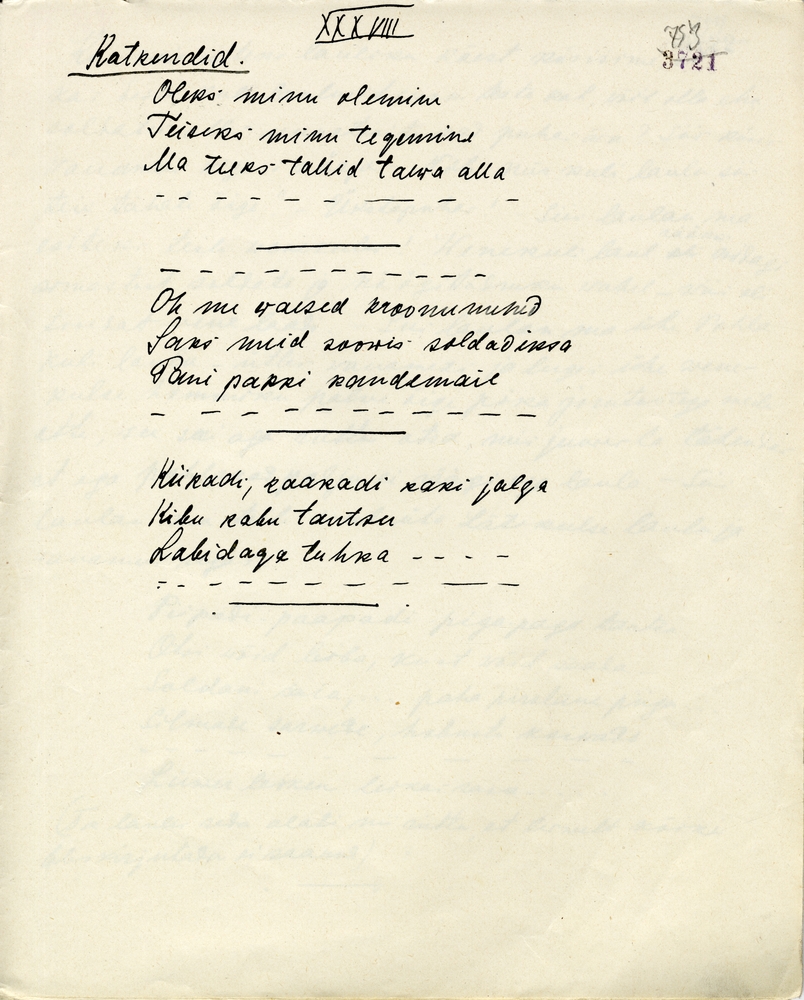 XXXVIII
753
3721
Katkendid.
Oleks minu olemine
Teiseks minu tegemine
Ma teeks tallid taewa alla
Oh me waesed kroonumehed
Saks meid soowis soldadiksa
Pani pakki kandemaie
Kiikadi, kaakadi kaki jalga
Kibu kabu tantsu
Labidaga tuhka - - - -